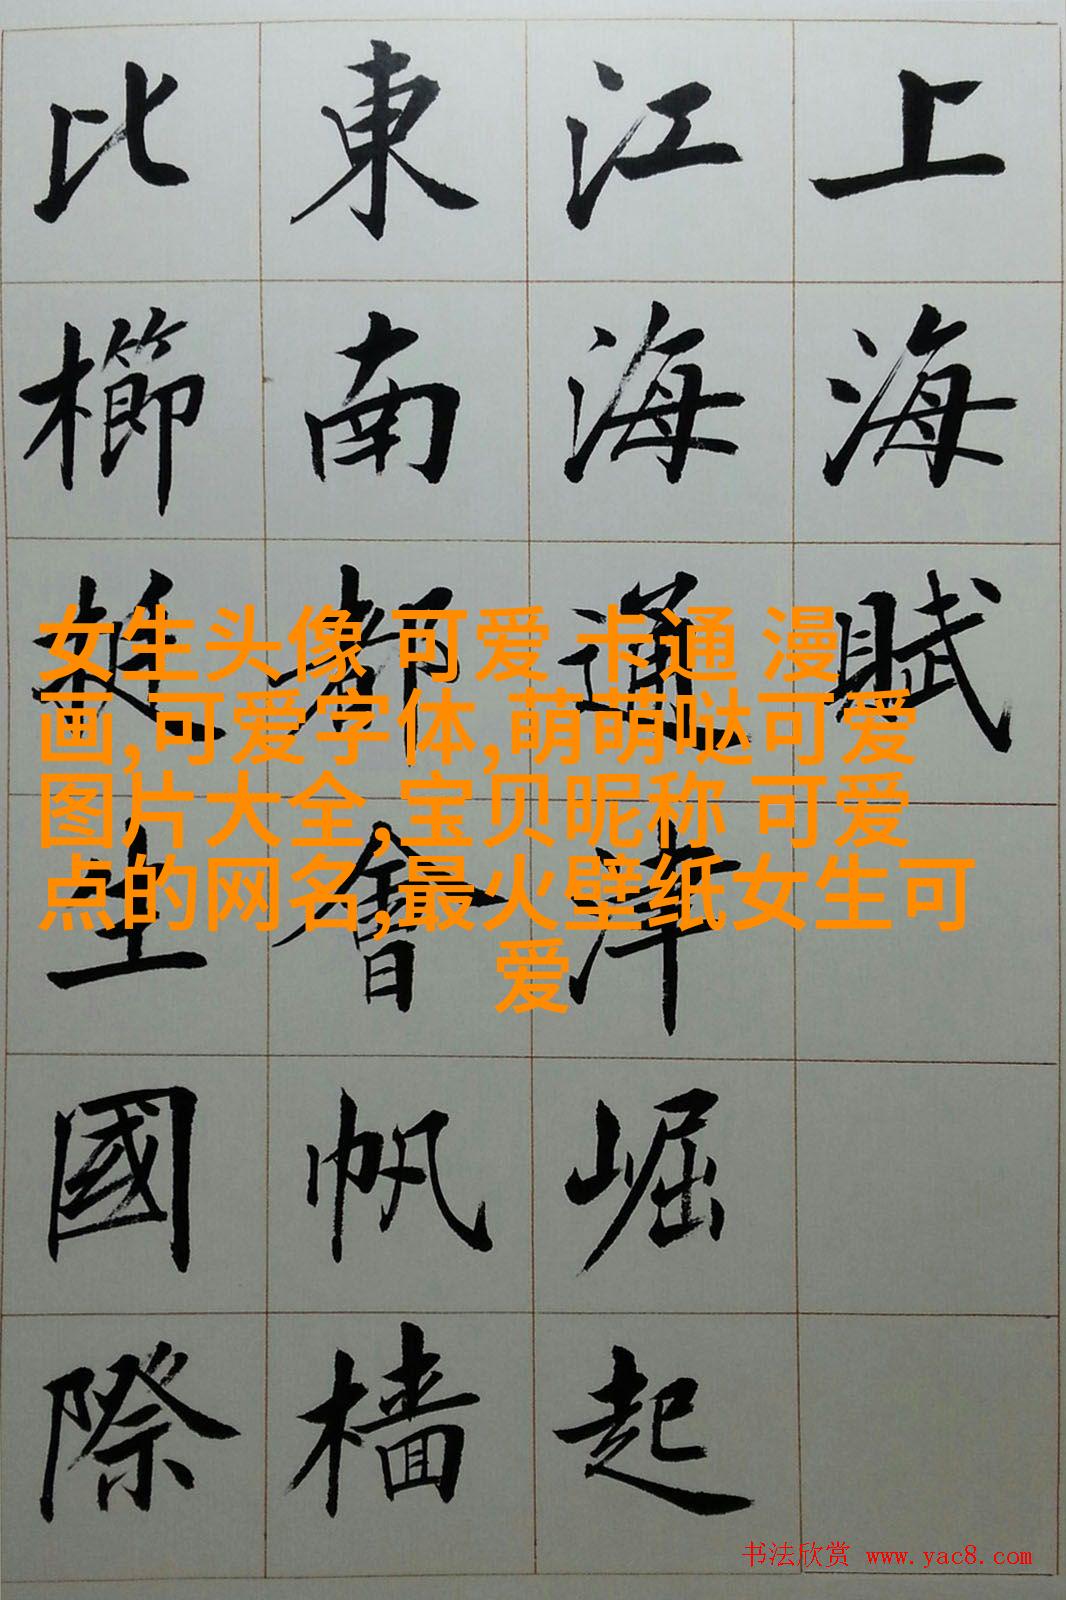 上海賦
江海通津崛起
東南都會帆檣
比櫛生國際
女生头像 可爱 卡通 漫
画,可爱字体,萌萌哒可爱
图片大全,宝贝昵称 可爱
点的网名,最火壁纸女生可
爱
书法欣赏 www.yac8.com